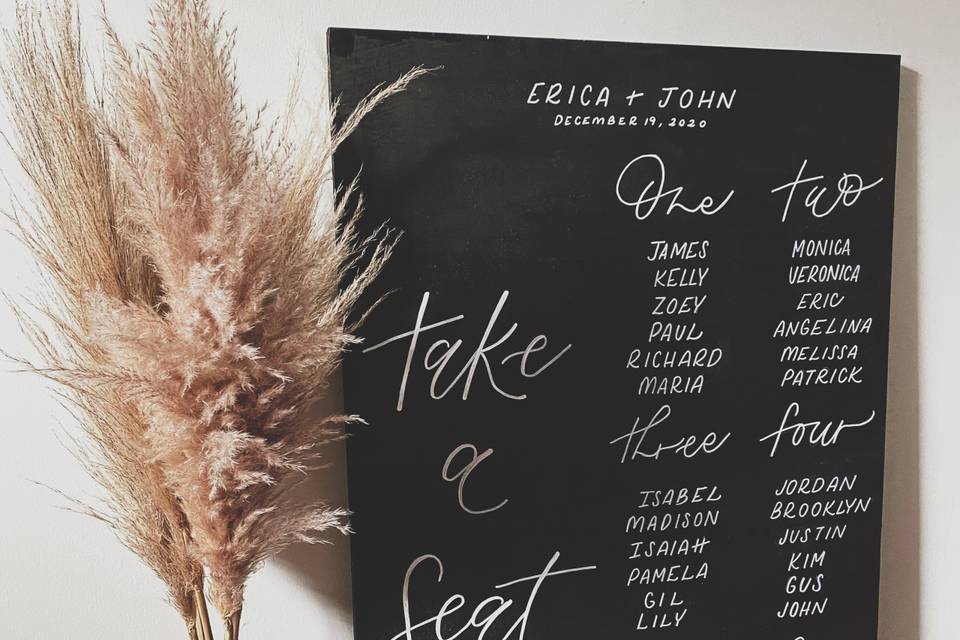 ERICA + JOHN
DECEMBER 19, 2020
take
a
seat
One
JAMES
KELLY
ZOEY
PAUL
RICHARD
MARIA
two
MONICA
VERONICA
ERIC
ANGELINA
MELISSA
PATRICK
three
ISABEL
MADISON
ISAIAH
PAMELA
GIL
LILY
four
JORDAN
BROOKLYN
JUSTIN
KIM
GUS
JOHN